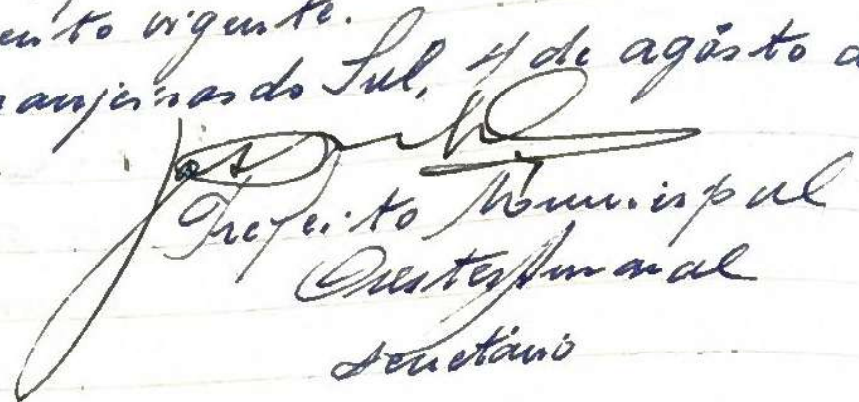 ento vigente.
ranjeiras do Sul, 4 de agôsto d
Prefeito Municipal
Orestes Amaral
secretário